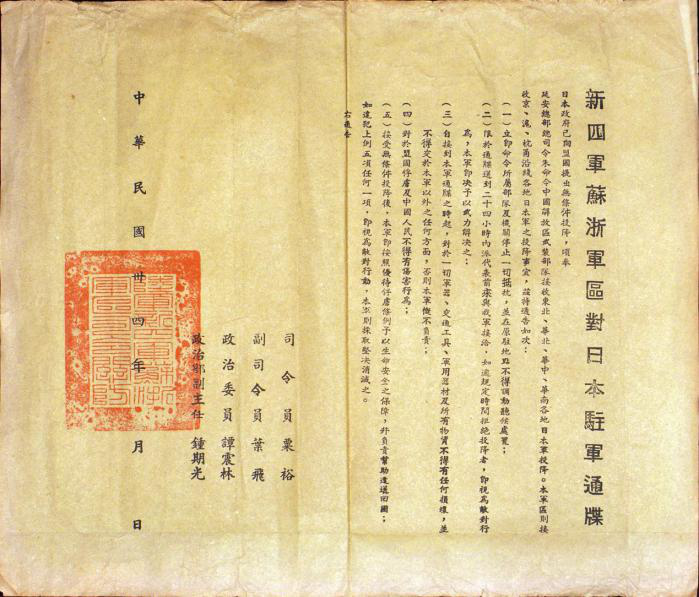 新四軍蘇浙軍區對日本駐軍通牒
日本政府已向盟國提出無條件投降，頃奉
延安總部總司令朱命令中國解放區武裝部隊接收東北、華北、華中、華南各地日本軍投降。本軍區則接
收京、滬、杭甬沿綫各地日本軍之投降事宜，茲特通告如次：
（一）立卽命令所屬部隊及機關停止一切抵抗，並在原駐地點不得調動聽候處置；
（二）限於通牒送到二十四小時內派代表前來與我軍接洽，如逾規定時間拒絶投降者，卽視爲敵對行
爲，本軍卽决予以武力解决之；
（三）自接到本軍通牒之時起，對於一切軍器、交通工具、軍用器材及所有物資不得有任何損壞，並
不得交於本軍以外之任何方面，否則本軍惟不負責；
（四）對於盟國俘虜及中國人民不得有傷害行爲；
（五）接受無條件投降後，本軍卽按照優待俘虜條例予以生命安全之保障，并負責幫助遣送回國；
如違犯上例五項任何一項，卽視爲敵對行動，本軍則採取堅决消滅之。
右通告
司令員粟裕
副司令員葉飛
政治委員譚震林
政治部副主任鍾期光
中華民國卅四年　月　日